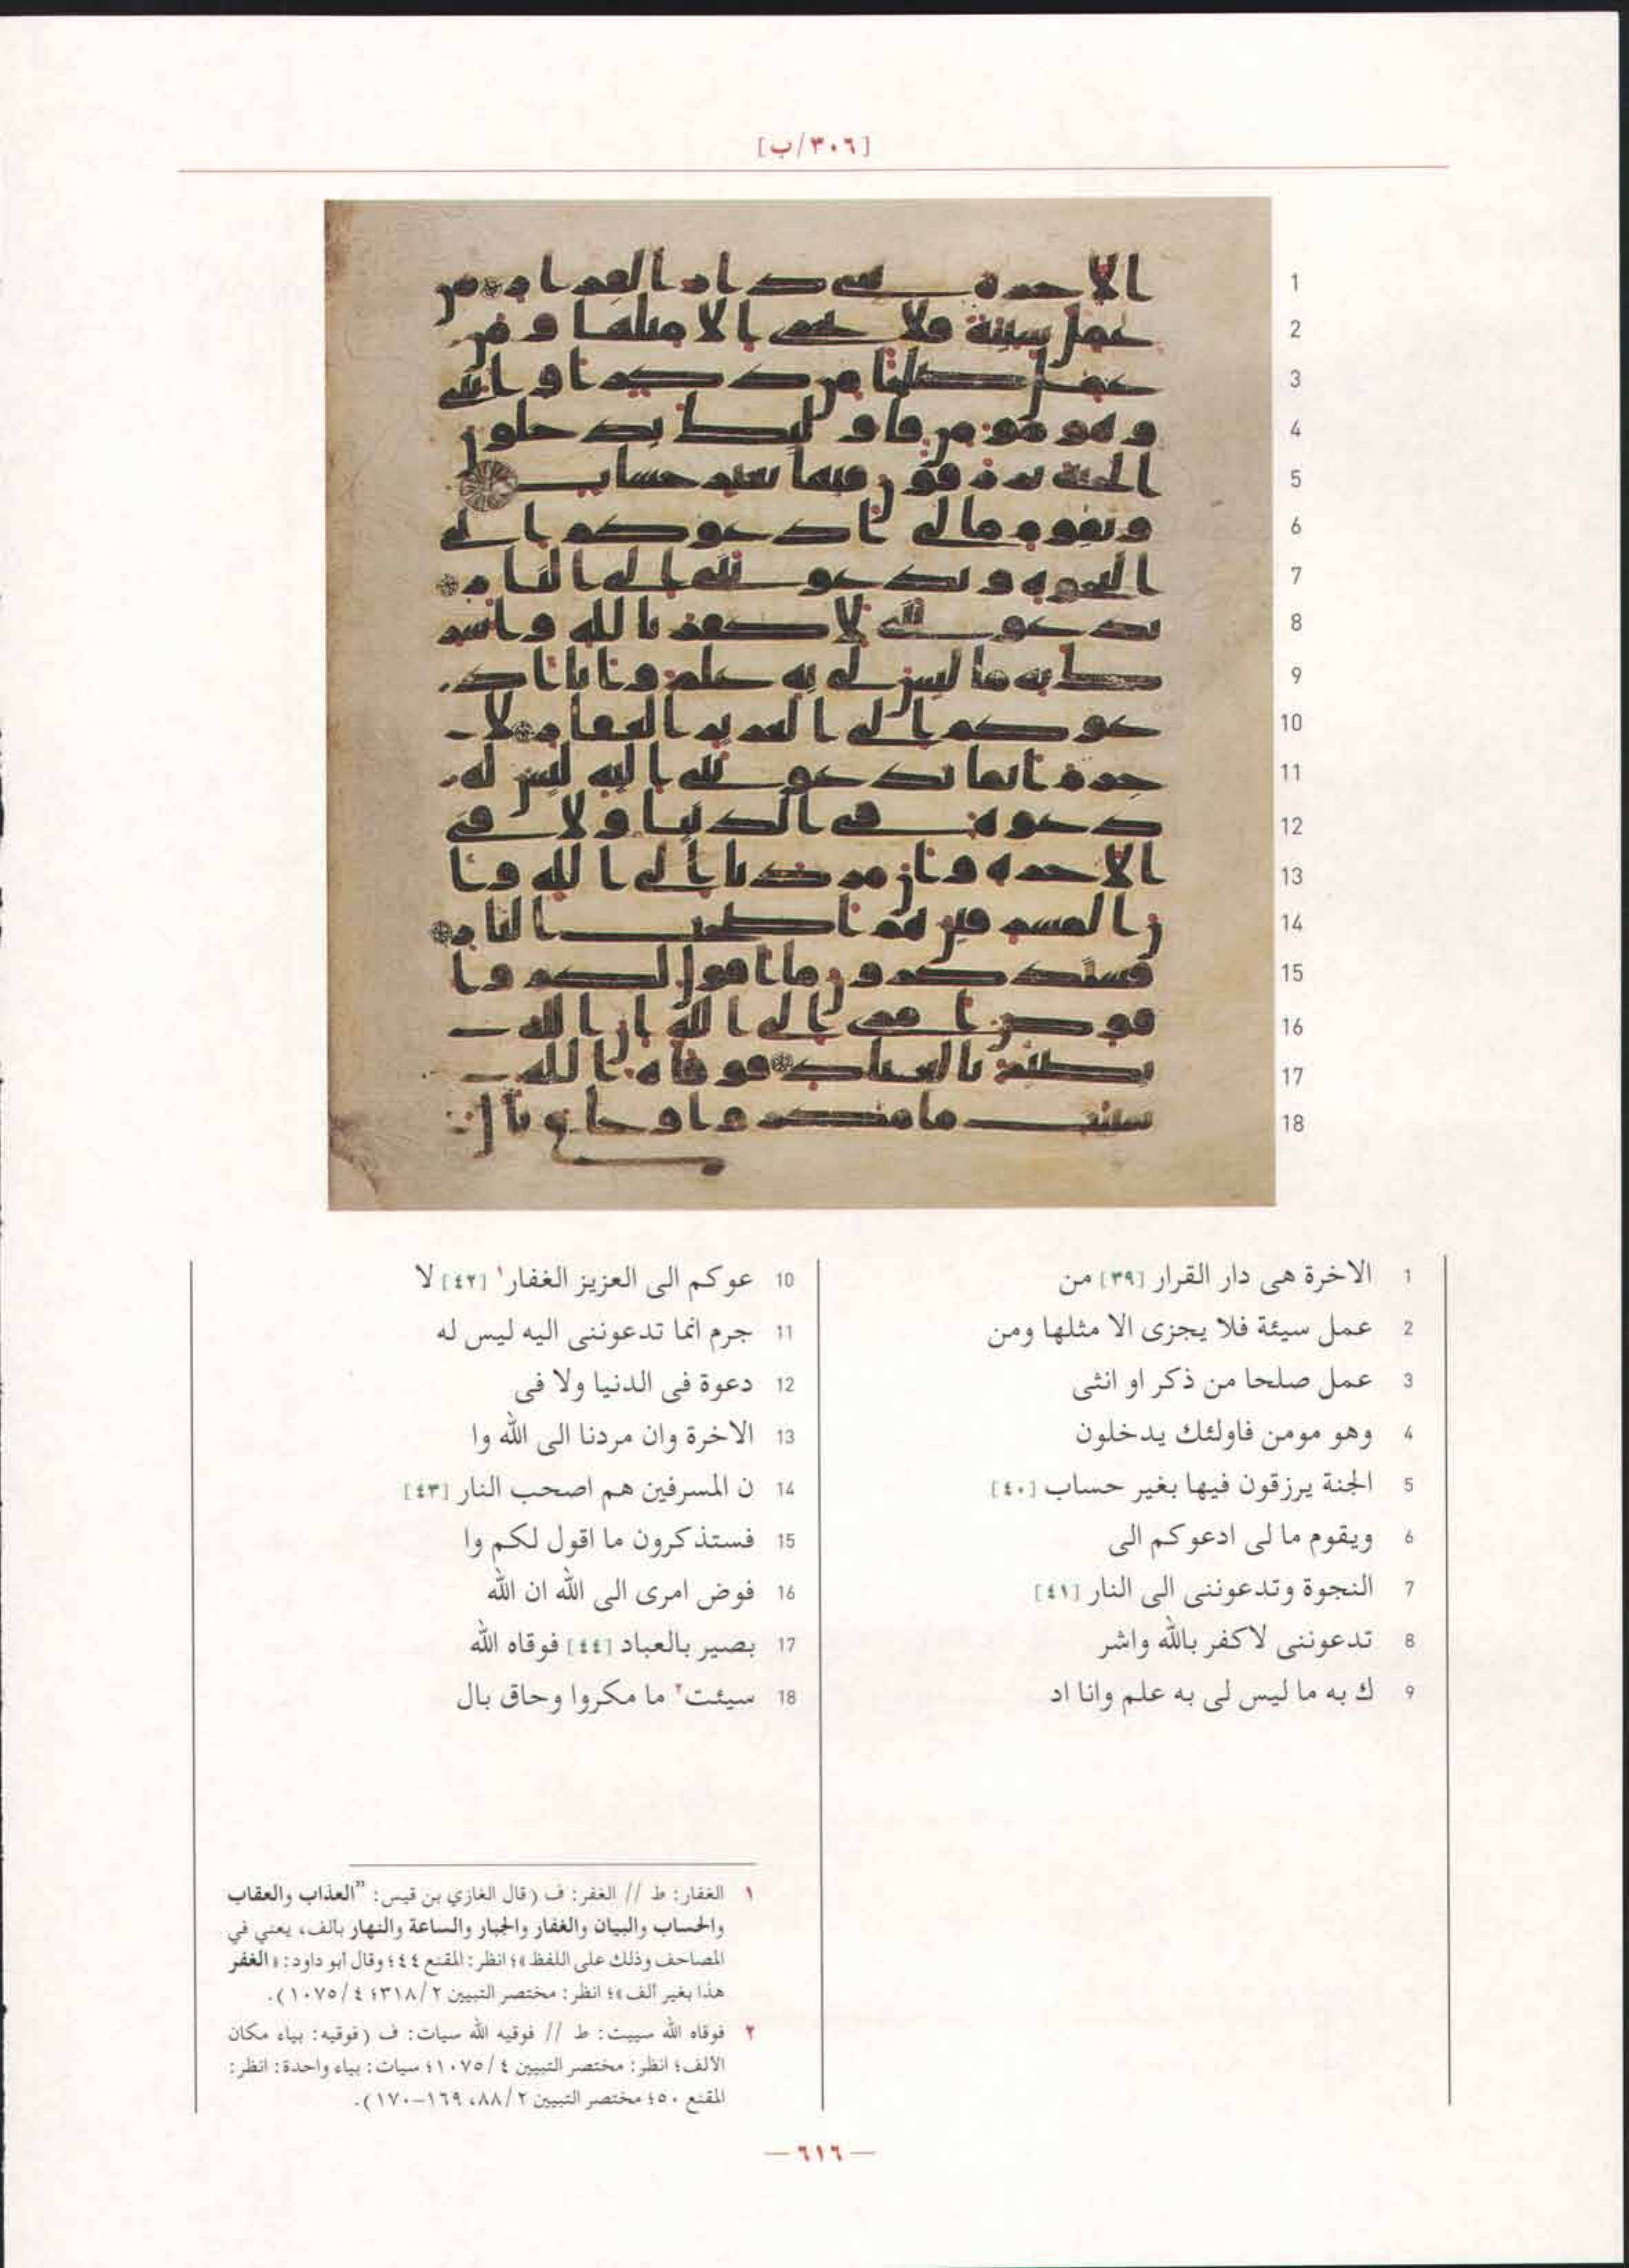 [٣٠٦/ب]
1 الاخرة هى دار القرار [٣٩] من
2 عمل سيئة فلا يجزى الا مثلها ومن
3 عمل صلحا من ذكر او انثى
4 وهو مومن فاولئك يدخلون
5 الجنة يرزقون فيها بغير حساب [٤٠]
6 ويقوم ما لى ادعوكم الى
7 النجوة وتدعوننى الى النار [٤١]
8 تدعوننى لاكفر بالله واشر
9 ك به ما ليس لى به علم وانا اد
10 عوكم الى العزيز الغفار١ [٤٢] لا
11 جرم انما تدعوننى اليه ليس له
12 دعوة فى الدنيا ولا فى
13 الاخرة وان مردنا الى الله وا
14 ن المسرفين هم اصحب النار [٤٣]
15 فستذكرون ما اقول لكم وا
16 فوض امرى الى الله ان الله
17 بصير بالعباد [٤٤] فوقاه الله
18 سيئت٢ ما مكروا وحاق بال
١ الغفار: ط // الغفر: ف (قال الغازي بن قيس: "العذاب والعقاب
والحساب والبيان والغفار والجبار والساعة والنهار بالف، يعني في
المصاحف وذلك على اللفظ»؛ انظر: المقنع ٤٤؛ وقال أبو داود: «الغفر
هذا بغير ألف»؛ انظر: مختصر التبيين ٣١٨/٢؛ ١٠٧٥/٤).
٢ فوقاه الله سيبت: ط // فوقيه الله سيات: ف (فوقيه: بياء مكان
الألف؛ انظر: مختصر التبيين ١٠٧٥/٤؛ سيات: بياء واحدة: انظر:
المقنع ٥٠؛ مختصر التبيين ٨٨/٢، ١٦٩-١٧٠).
— ٦١٦ —